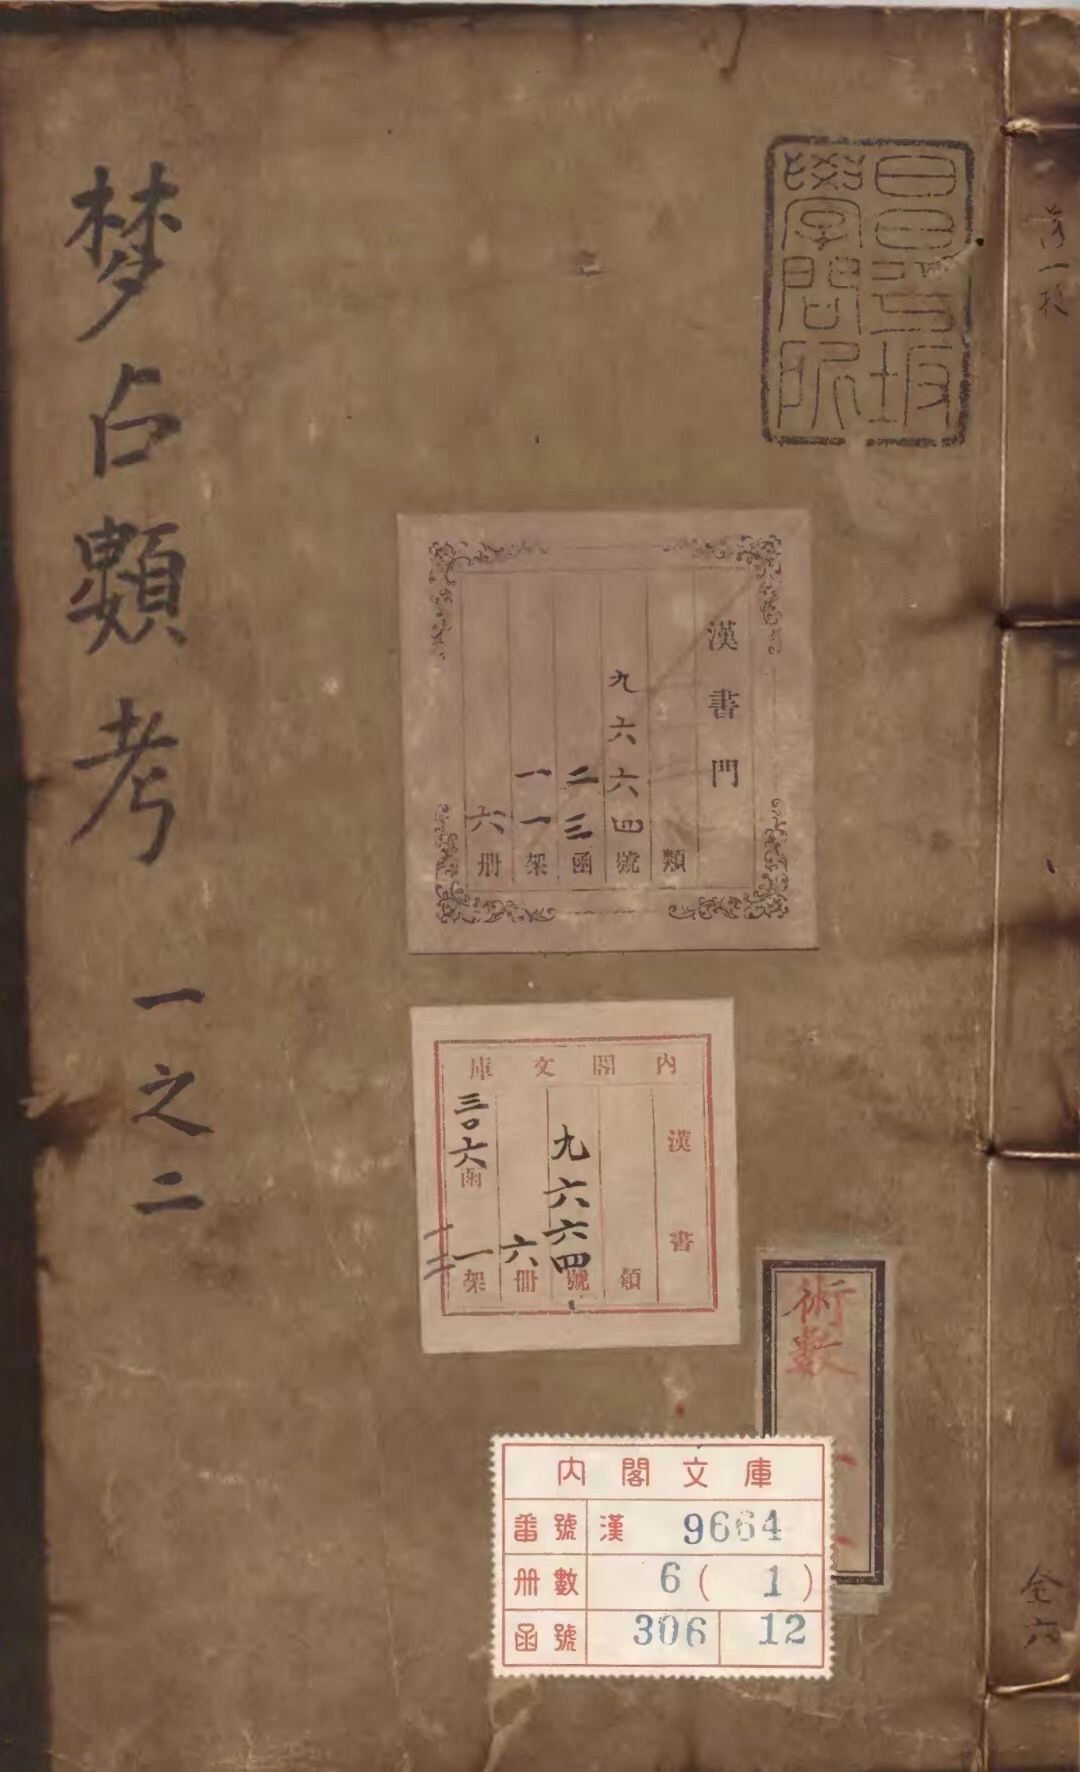 梦占類考 一之二
昌平坂
學問所
漢書門
類
九六六四號
二三函
一一架
六册
內閣文庫
漢書
類
九六六四號
六冊
三〇六函
一架
一二
術數
內閣文庫
番號 漢 9664
册數 6(1)
函號 306 12
全六